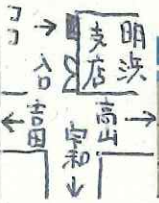 ココ→
入口
明浜
支店
←吉田
高山→
宇和
↓